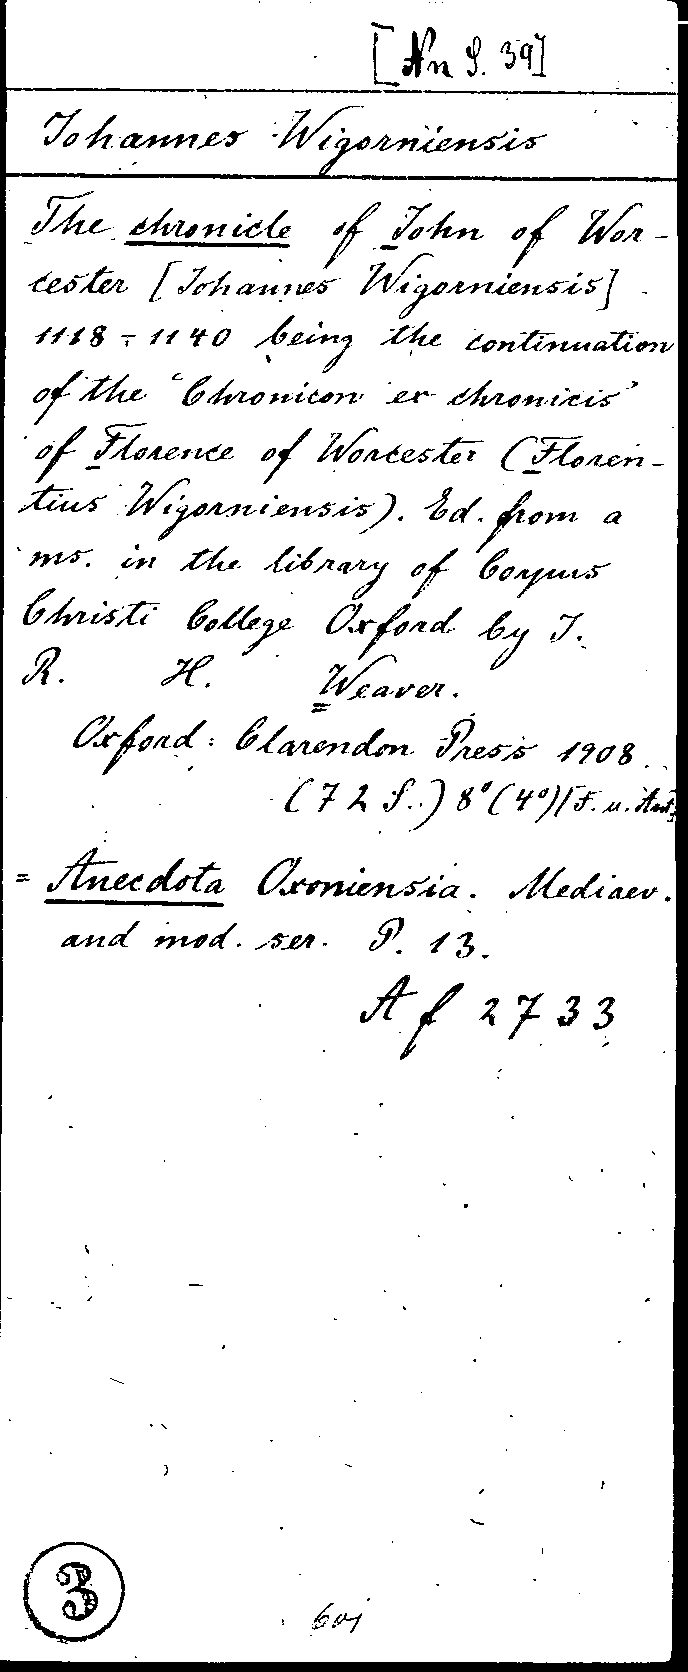 [Nn S. 39]
Johannes Wigorniensis
The chronicle of John of Wor-
cester [Johannes Wigorniensis]
1118-1140 being the continuation
of the "Chronicon ex chronicis"
of Florence of Worcester (Floren-
tius Wigorniensis). Ed. from a
ms. in the library of Corpus
Christi College Oxford by J.
R. H. Weaver.
Oxford: Clarendon Press 1908.
(72 S.) 8° (4°) [F. u. Ant.]
= Anecdota Oxoniensia. Mediaev.
and mod. ser. P. 13.
Af 2733
3